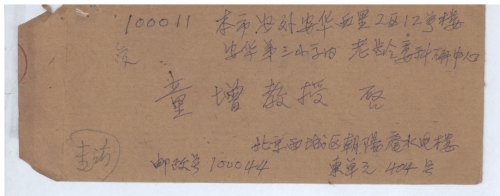 100011 本市安外安华西里2区12号楼
安华第三小学内 老龄委科研中心
童增教授 启
北京西城区朝阳庵水电楼
邮政号100044 东单元404号